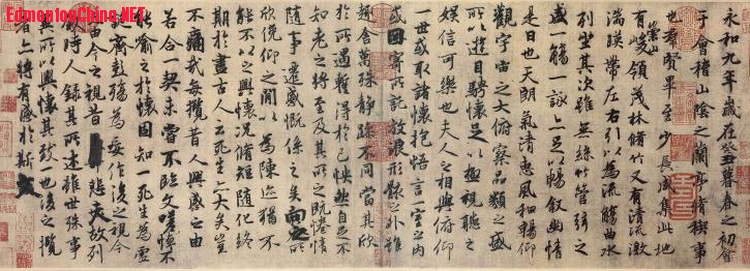 EdmontonChina.NET
永和九年歲在癸丑暮春之初會
于會稽山陰之蘭亭脩稧事
也群賢畢至少長咸集此地
有崇山峻領茂林脩竹又有清流激
湍暎帶左右引以為流觴曲水
列坐其次雖無絲竹管弦之
盛一觴一詠亦足以暢敘幽情
是日也天朗氣清惠風和暢仰
觀宇宙之大俯察品類之盛
所以遊目騁懷足以極視聽之
娛信可樂也夫人之相與俯仰
一世或取諸懷抱悟言一室之內
或因寄所託放浪形骸之外雖
趣舍萬殊靜躁不同當其欣
於所遇蹔得於己怏然自足不
知老之將至及其所之既惓情
隨事遷感慨係之矣向之所
欣俛仰之閒以為陳迹猶不
能不以之興懷況脩短隨化終
期於盡古人云死生亦大矣豈
不痛哉每攬昔人興感之由
若合一契未嘗不臨文嗟悼不
能喻之於懷固知一死生為虛
誕齊彭殤為妄作後之視今
亦由今之視昔悲夫故列
敘時人錄其所述雖世殊事
異所以興懷其致一也後之攬
者亦將有感於斯文